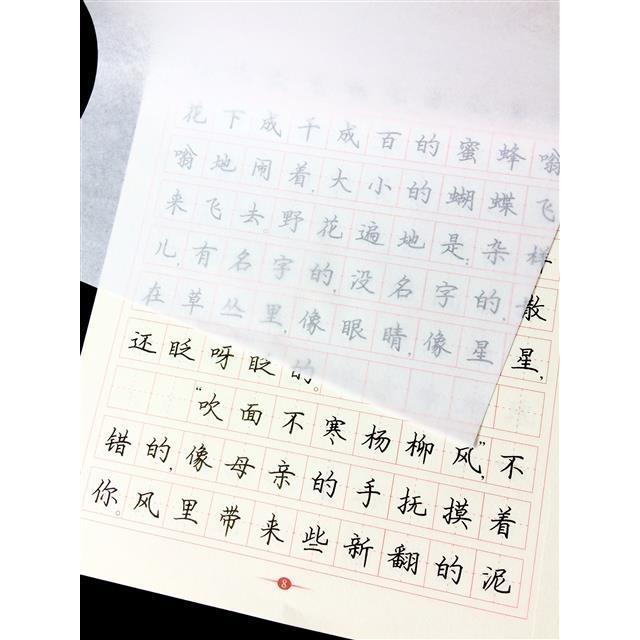 花下成千成百的蜜蜂嗡
嗡地闹着,大小的蝴蝶飞
来飞去。野花遍地是:杂样
儿,有名字的,没名字的,散
在草丛里,像眼睛,像星星,
还眨呀眨的。
“吹面不寒杨柳风”,不
错的,像母亲的手抚摸着
你。风里带来些新翻的泥
8